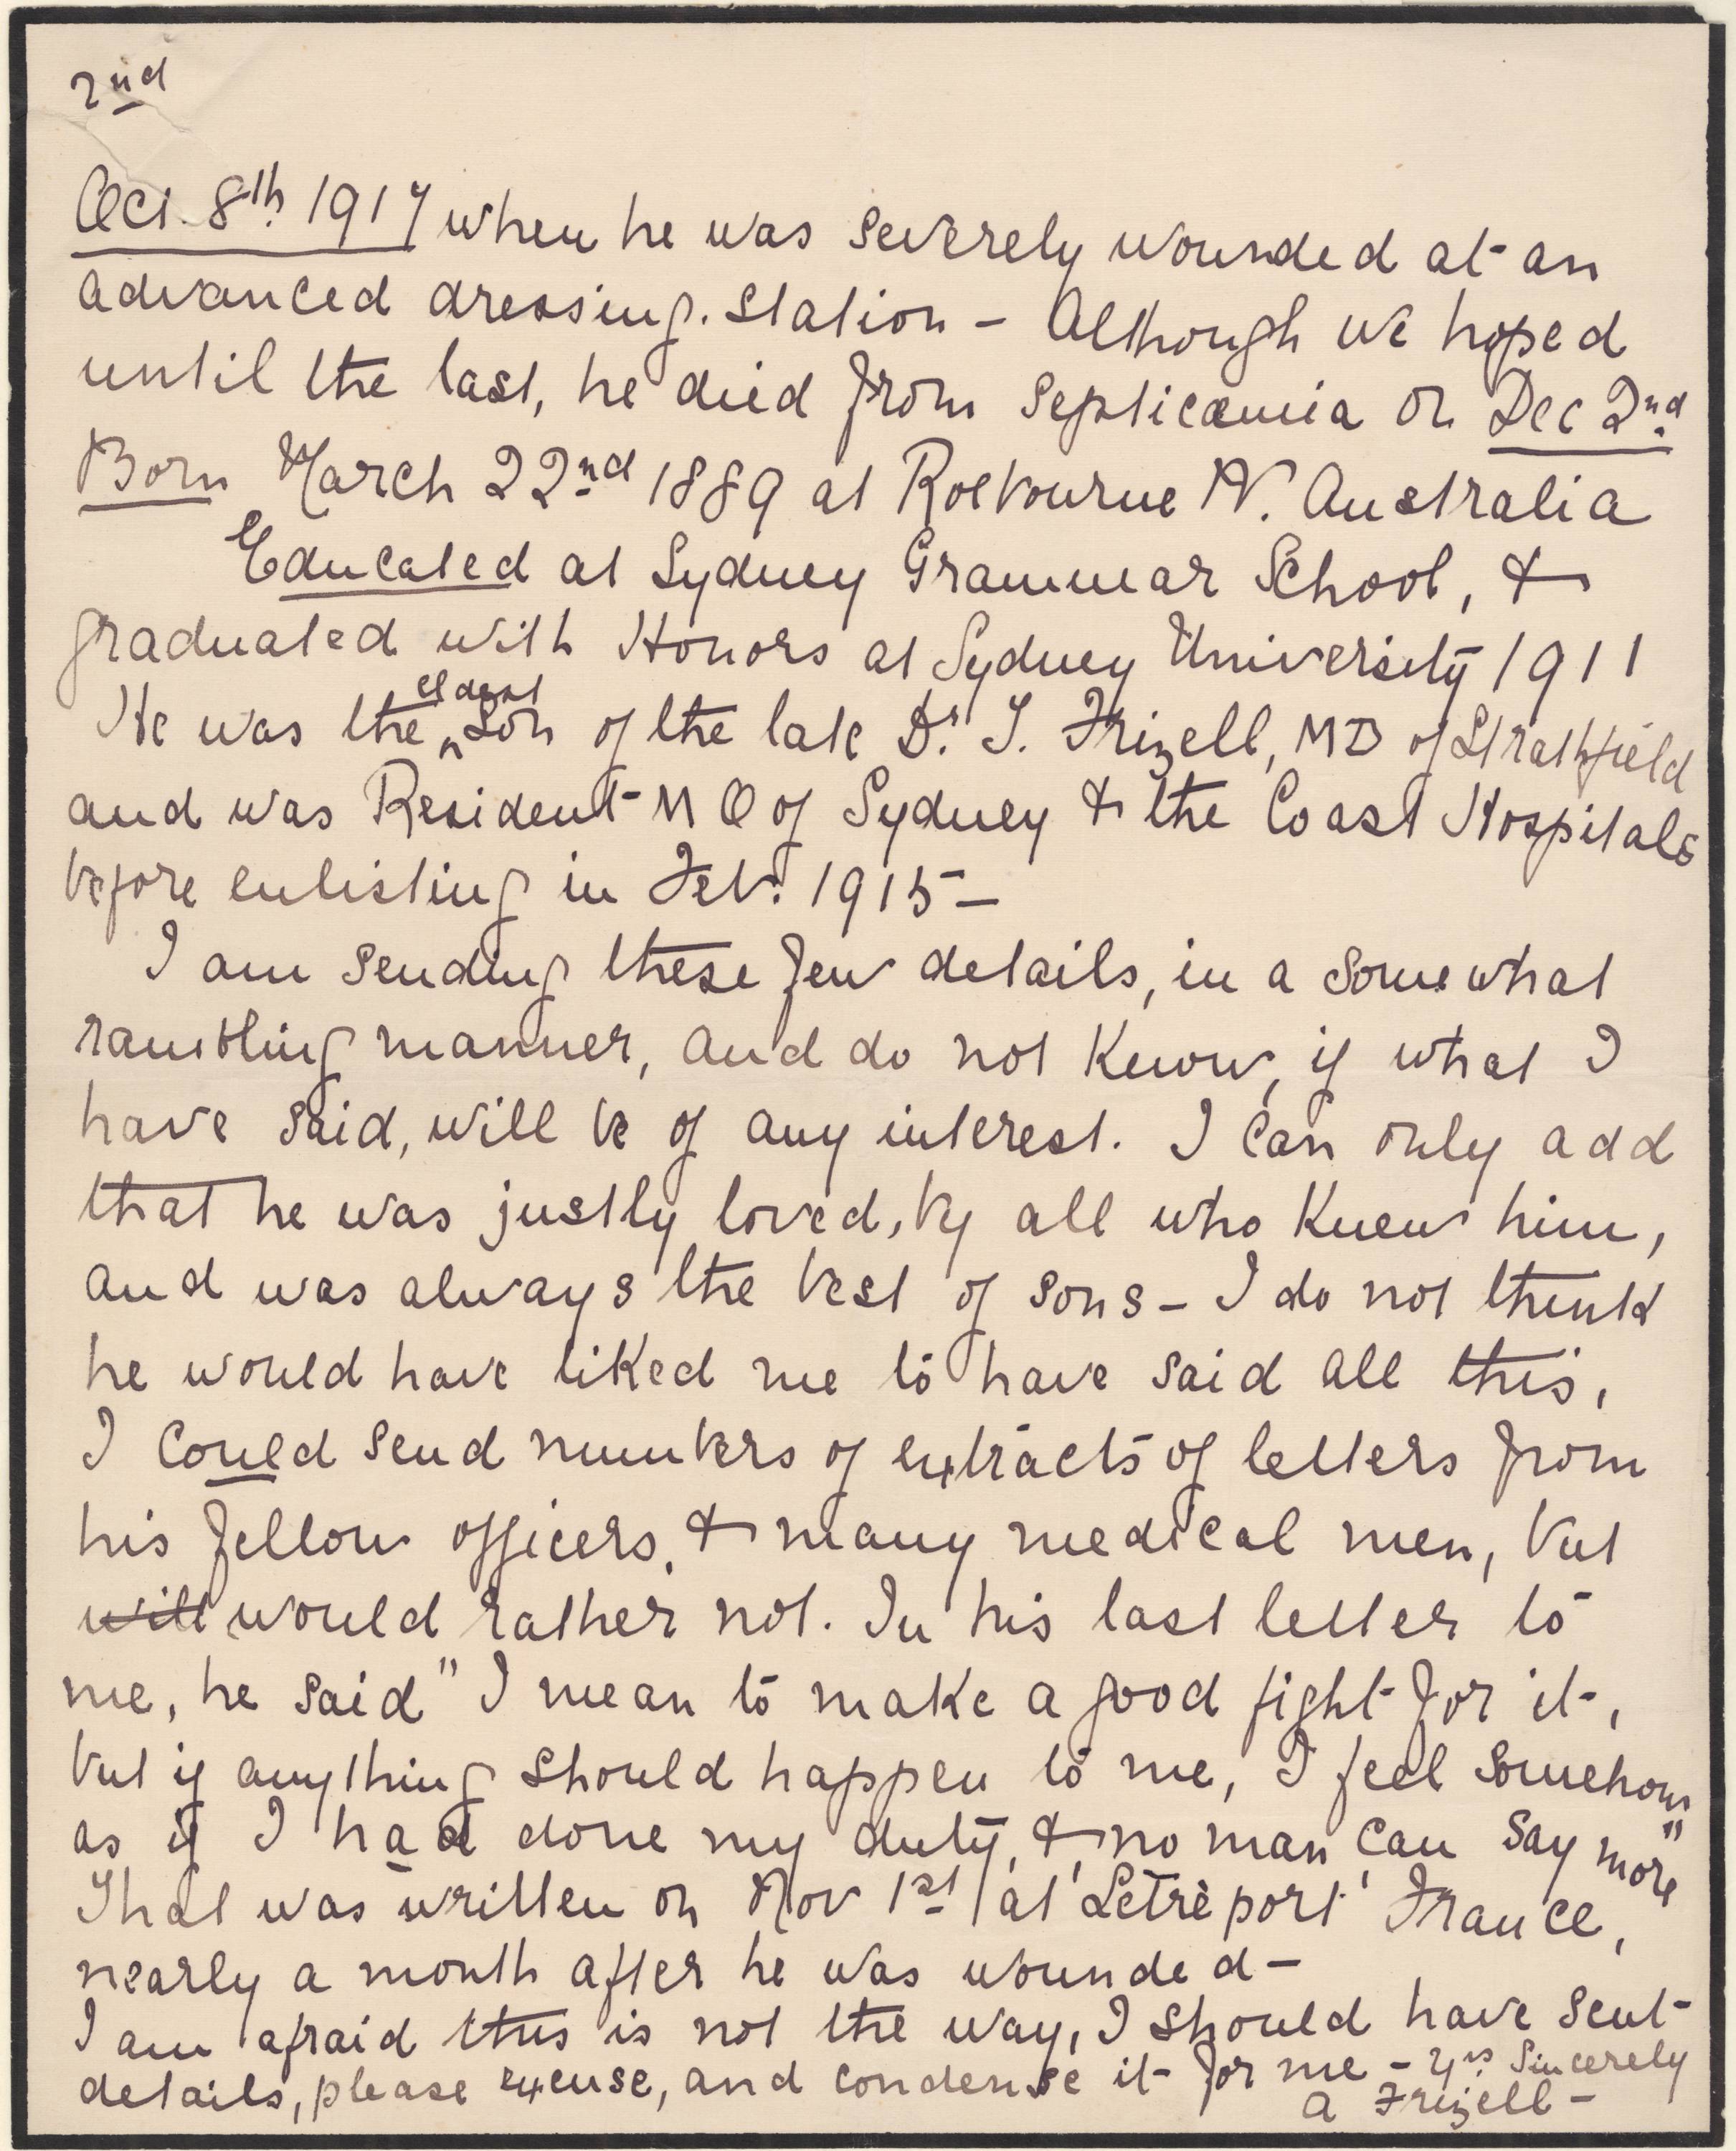 2nd
Oct. 8th 1917 when he was severely wounded at an
advanced dressing. station - Although we hoped
until the last, he died from septicæmia on Dec 2nd
Born March 22nd 1889 at Roebourne N. Australia
Educated at Sydney Grammar School, &
graduated with Honors at Sydney University 1911
He was the eldest son of the late Dr. T. Frizell, MD of Strathfield
and was Resident M O of Sydney & the Coast Hospitals
before enlisting in Feb: 1915 -
I am sending these few details, in a somewhat
rambling manner, and do not know, if what I
have said, will be of any interest. I can only add
that he was justly loved, by all who knew him,
and was always the best of sons - I do not think
he would have liked me to have said all this,
I could send numbers of extracts of letters from
his fellow officers, & many medical men, but
will would rather not. In his last letter to
me, he said "I mean to make a good fight for it,
but if anything should happen to me, I feel somehow
as if I had done my duty, & no man can say more"
That was written on Nov 1st at 'Letrèport' France,
nearly a month after he was wounded -
I am afraid this is not the way, I should have sent
details, please excuse, and condense it for me - Yrs Sincerely
A Frizell -